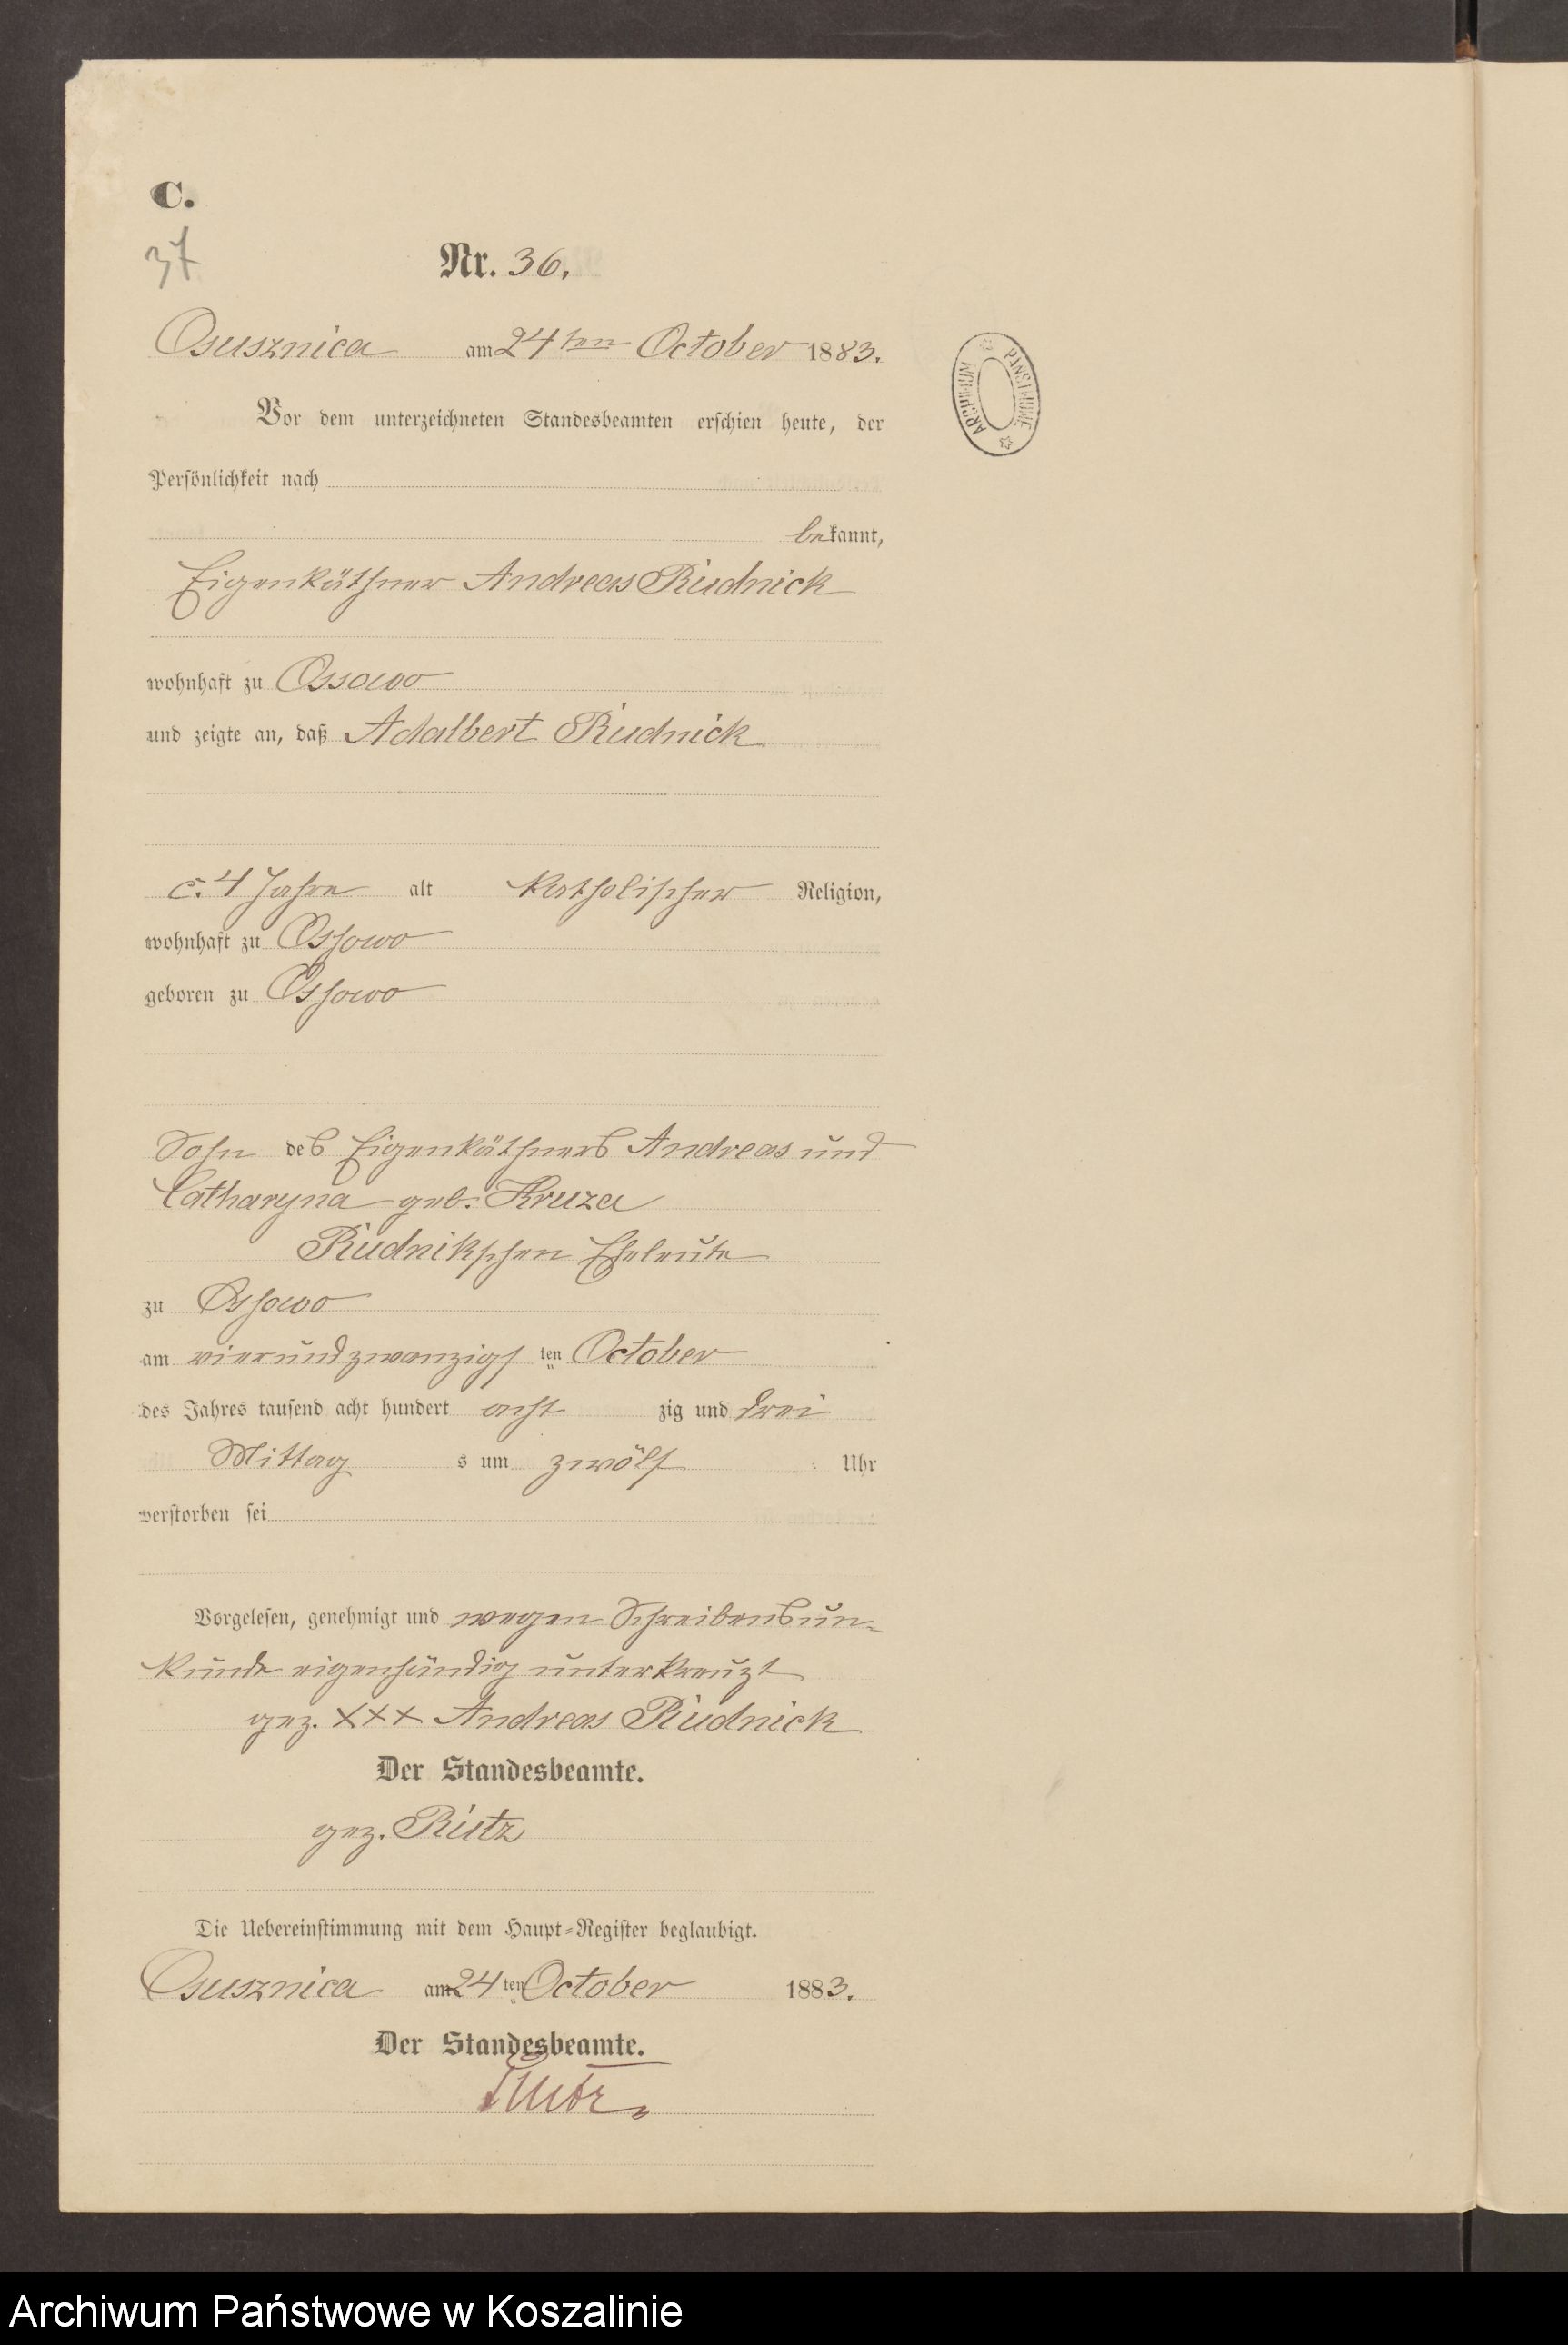 C.
37
Nr. 36.
Osusznica am 24ten October 1883.
Vor dem unterzeichneten Standesbeamten erschien heute, der
Persönlichkeit nach
bekannt,
Eigenkäthner Andreas Rudnick
wohnhaft zu Ossowo
und zeigte an, daß Adalbert Rudnick
c. 4 Jahre alt katholischer Religion,
wohnhaft zu Ossowo
geboren zu Ossowo
Sohn des Eigenkäthners Andreas und
Catharyna geb. Kruza
Rudnikschen Eheleute
zu Ossowo
am vierundzwanzigsten October
des Jahres tausend acht hundert acht zig und drei
Mittag s um zwölf Uhr
verstorben sei
Vorgelesen, genehmigt und wegen Schreibensun-
kunde eigenhändig unterkreuzt
gez. XXX Andreas Rudnick
Der Standesbeamte.
gez. Rutz
Die Uebereinstimmung mit dem Haupt-Register beglaubigt.
Osusznica am 24ten October 1883.
Der Standesbeamte.
Rutz.
ARCHIWUM PAŃSTWOWE
Archiwum Państwowe w Koszalinie